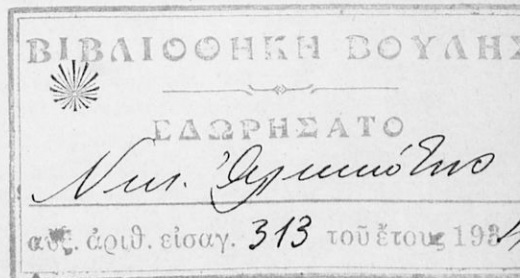 ΒΙΒΛΙΟΘΗΚΗ ΒΟΥΛΗΣ
ΕΔΩΡΗΣΑΤΟ
Νικ.
αὐξ. ἀριθ. εἰσαγ. 313 τοῦ ἔτους 193